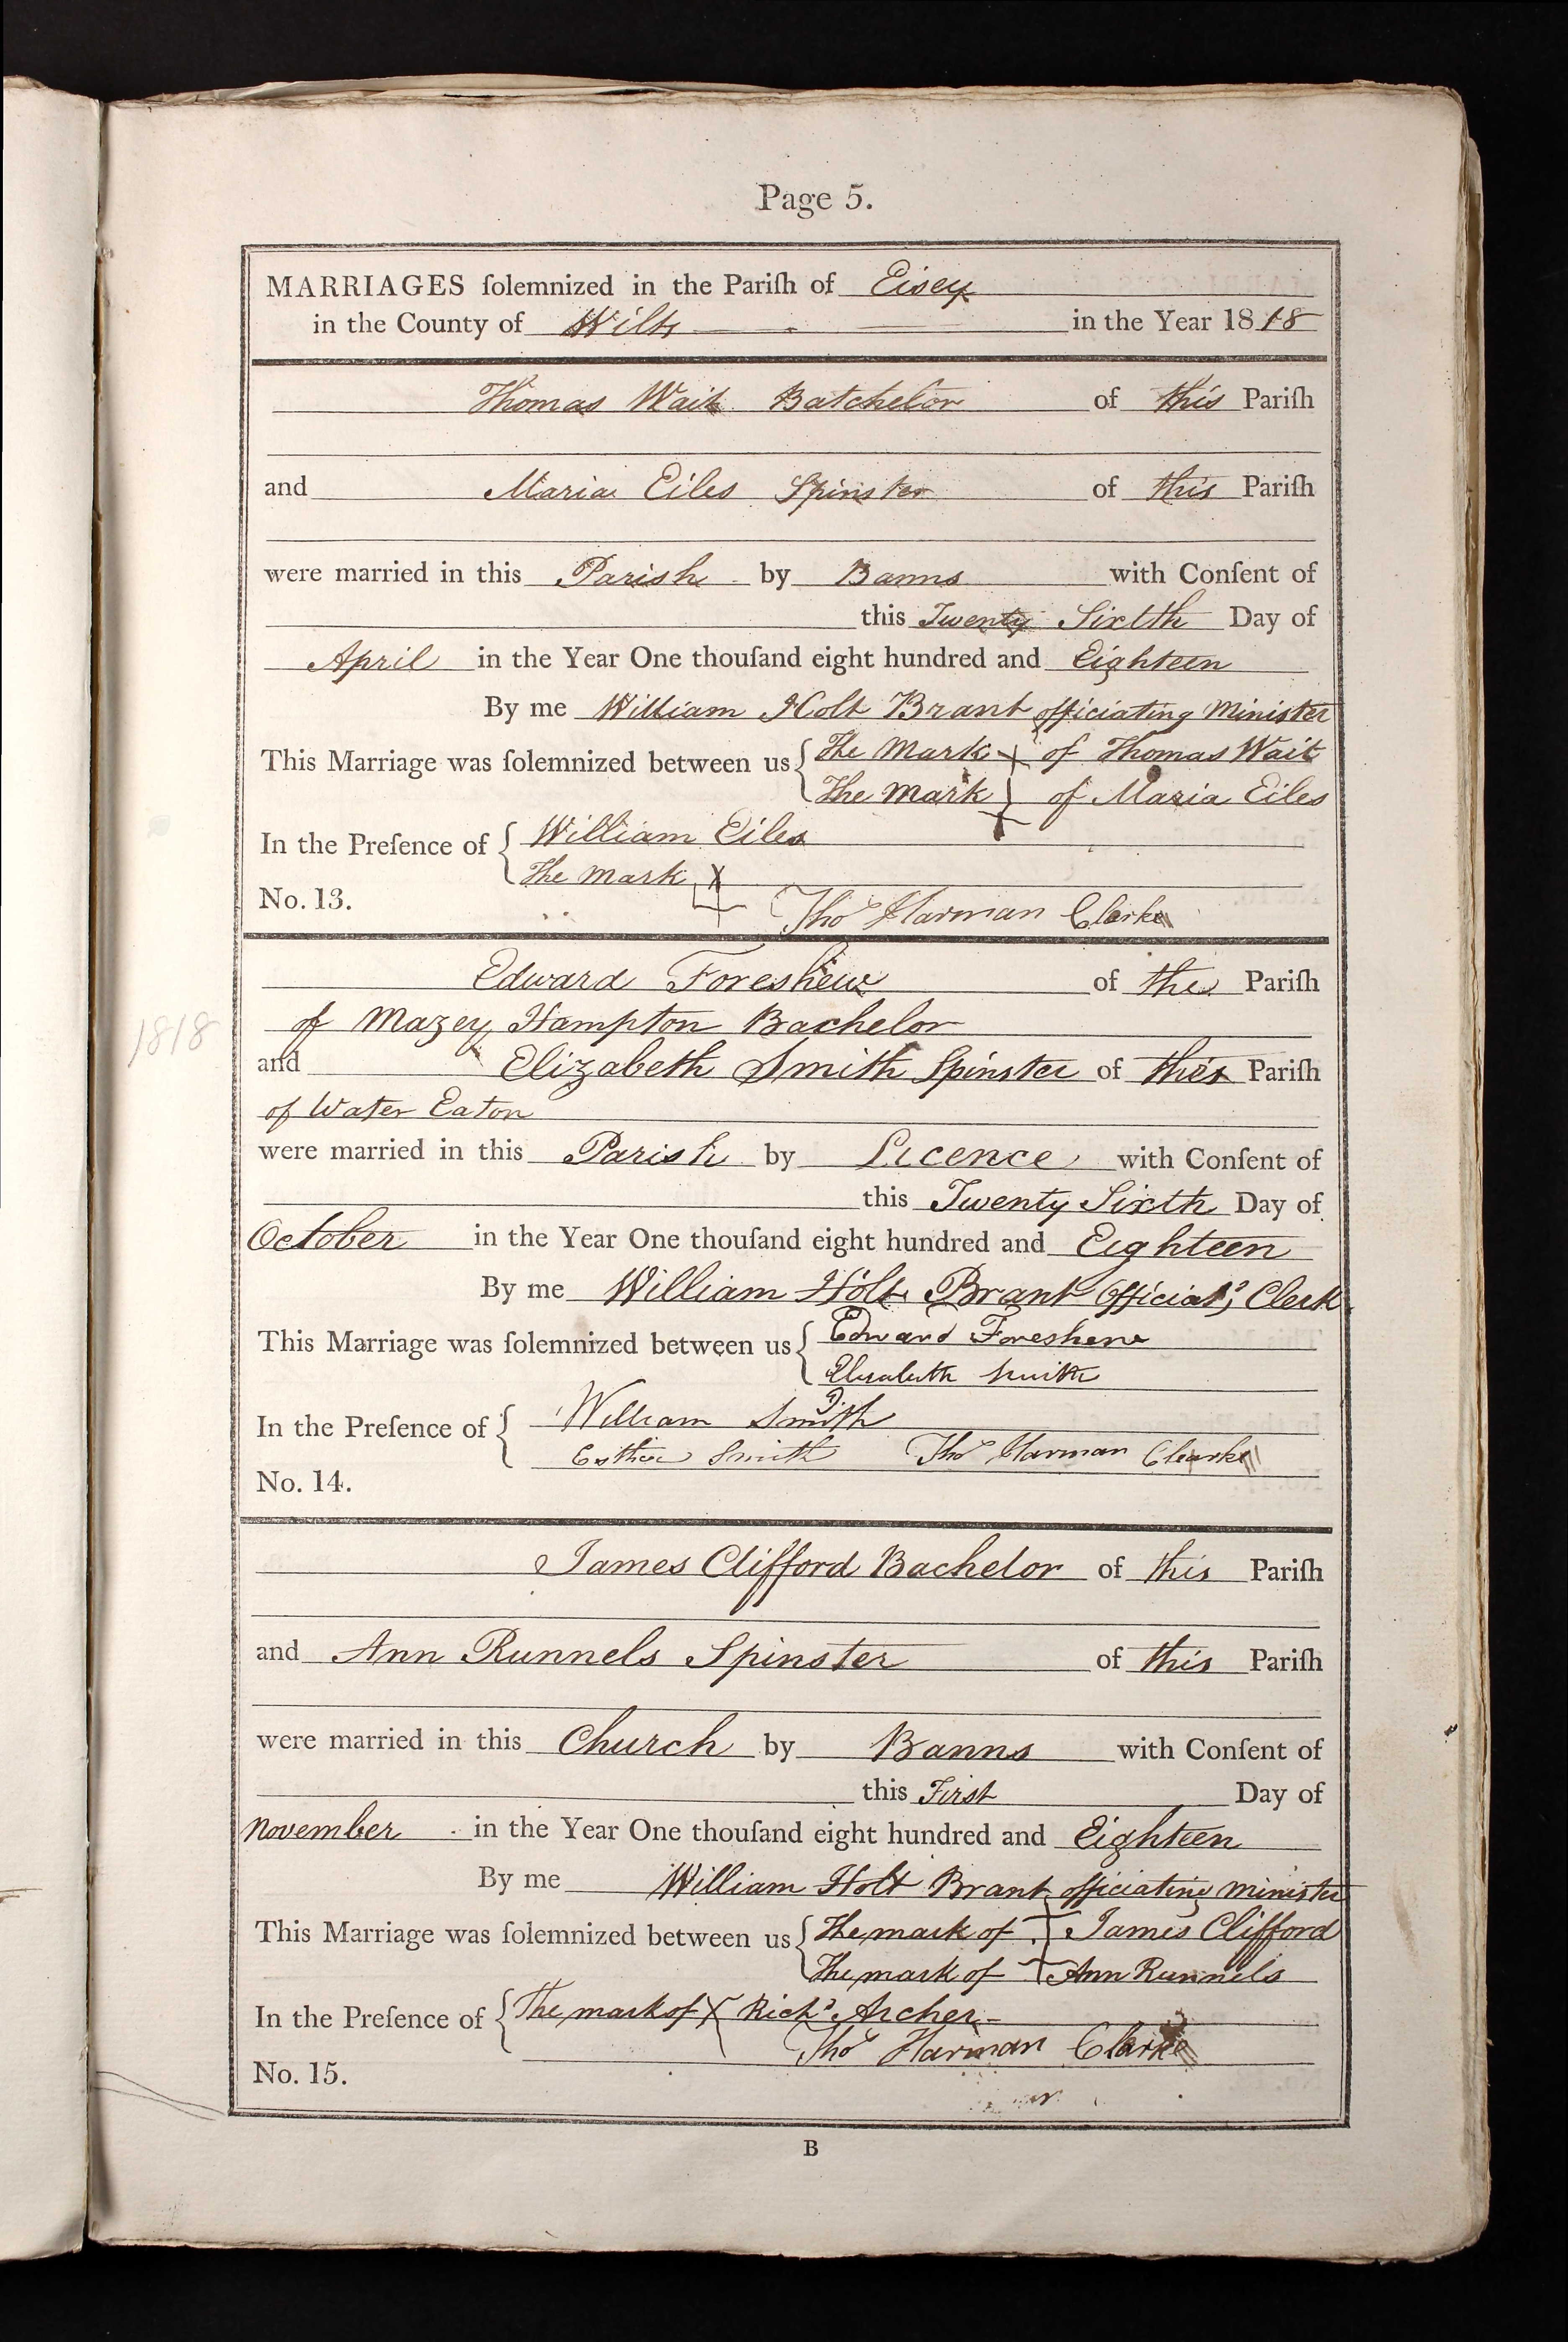 Page 5.
MARRIAGES ſolemnized in the Pariſh of Eisey
in the County of Wilts in the Year 1818
Thomas Wait Batchelor of this Pariſh
and Maria Eiles Spinster of this Pariſh
were married in this Parish by Banns with Conſent of
this Twenty Sixtth Day of
April in the Year One thouſand eight hundred and Eighteen
By me William Holt Brant officiating Minister
This Marriage was ſolemnized between us { The Mark X of Thomas Wait
The Mark X of Maria Eiles
In the Preſence of { William Eiles
The Mark X
No. 13. Thos Harman Clarke
Edward Foreshew of the Pariſh
of Mazey Hampton Bachelor
1818
and Elizabeth Smith Spinster of this Pariſh
of Water Eaton
were married in this Parish by Licence with Conſent of
this Twenty Sixth Day of
October in the Year One thouſand eight hundred and Eighteen
By me William Holt Brant Officiatg Clerk
This Marriage was ſolemnized between us { Edward Foreshew
Elizabeth Smith
In the Preſence of { William Smith
Esther Smith Thos Harman Clarke
No. 14.
James Clifford Bachelor of this Pariſh
and Ann Runnels Spinster of this Pariſh
were married in this Church by Banns with Conſent of
this First Day of
November in the Year One thouſand eight hundred and Eighteen
By me William Holt Brant officiating minister
This Marriage was ſolemnized between us { The mark of X James Clifford
The mark of X Ann Runnels
In the Preſence of { The mark of X Richd Archer
Thos Harman Clarke
No. 15.
B